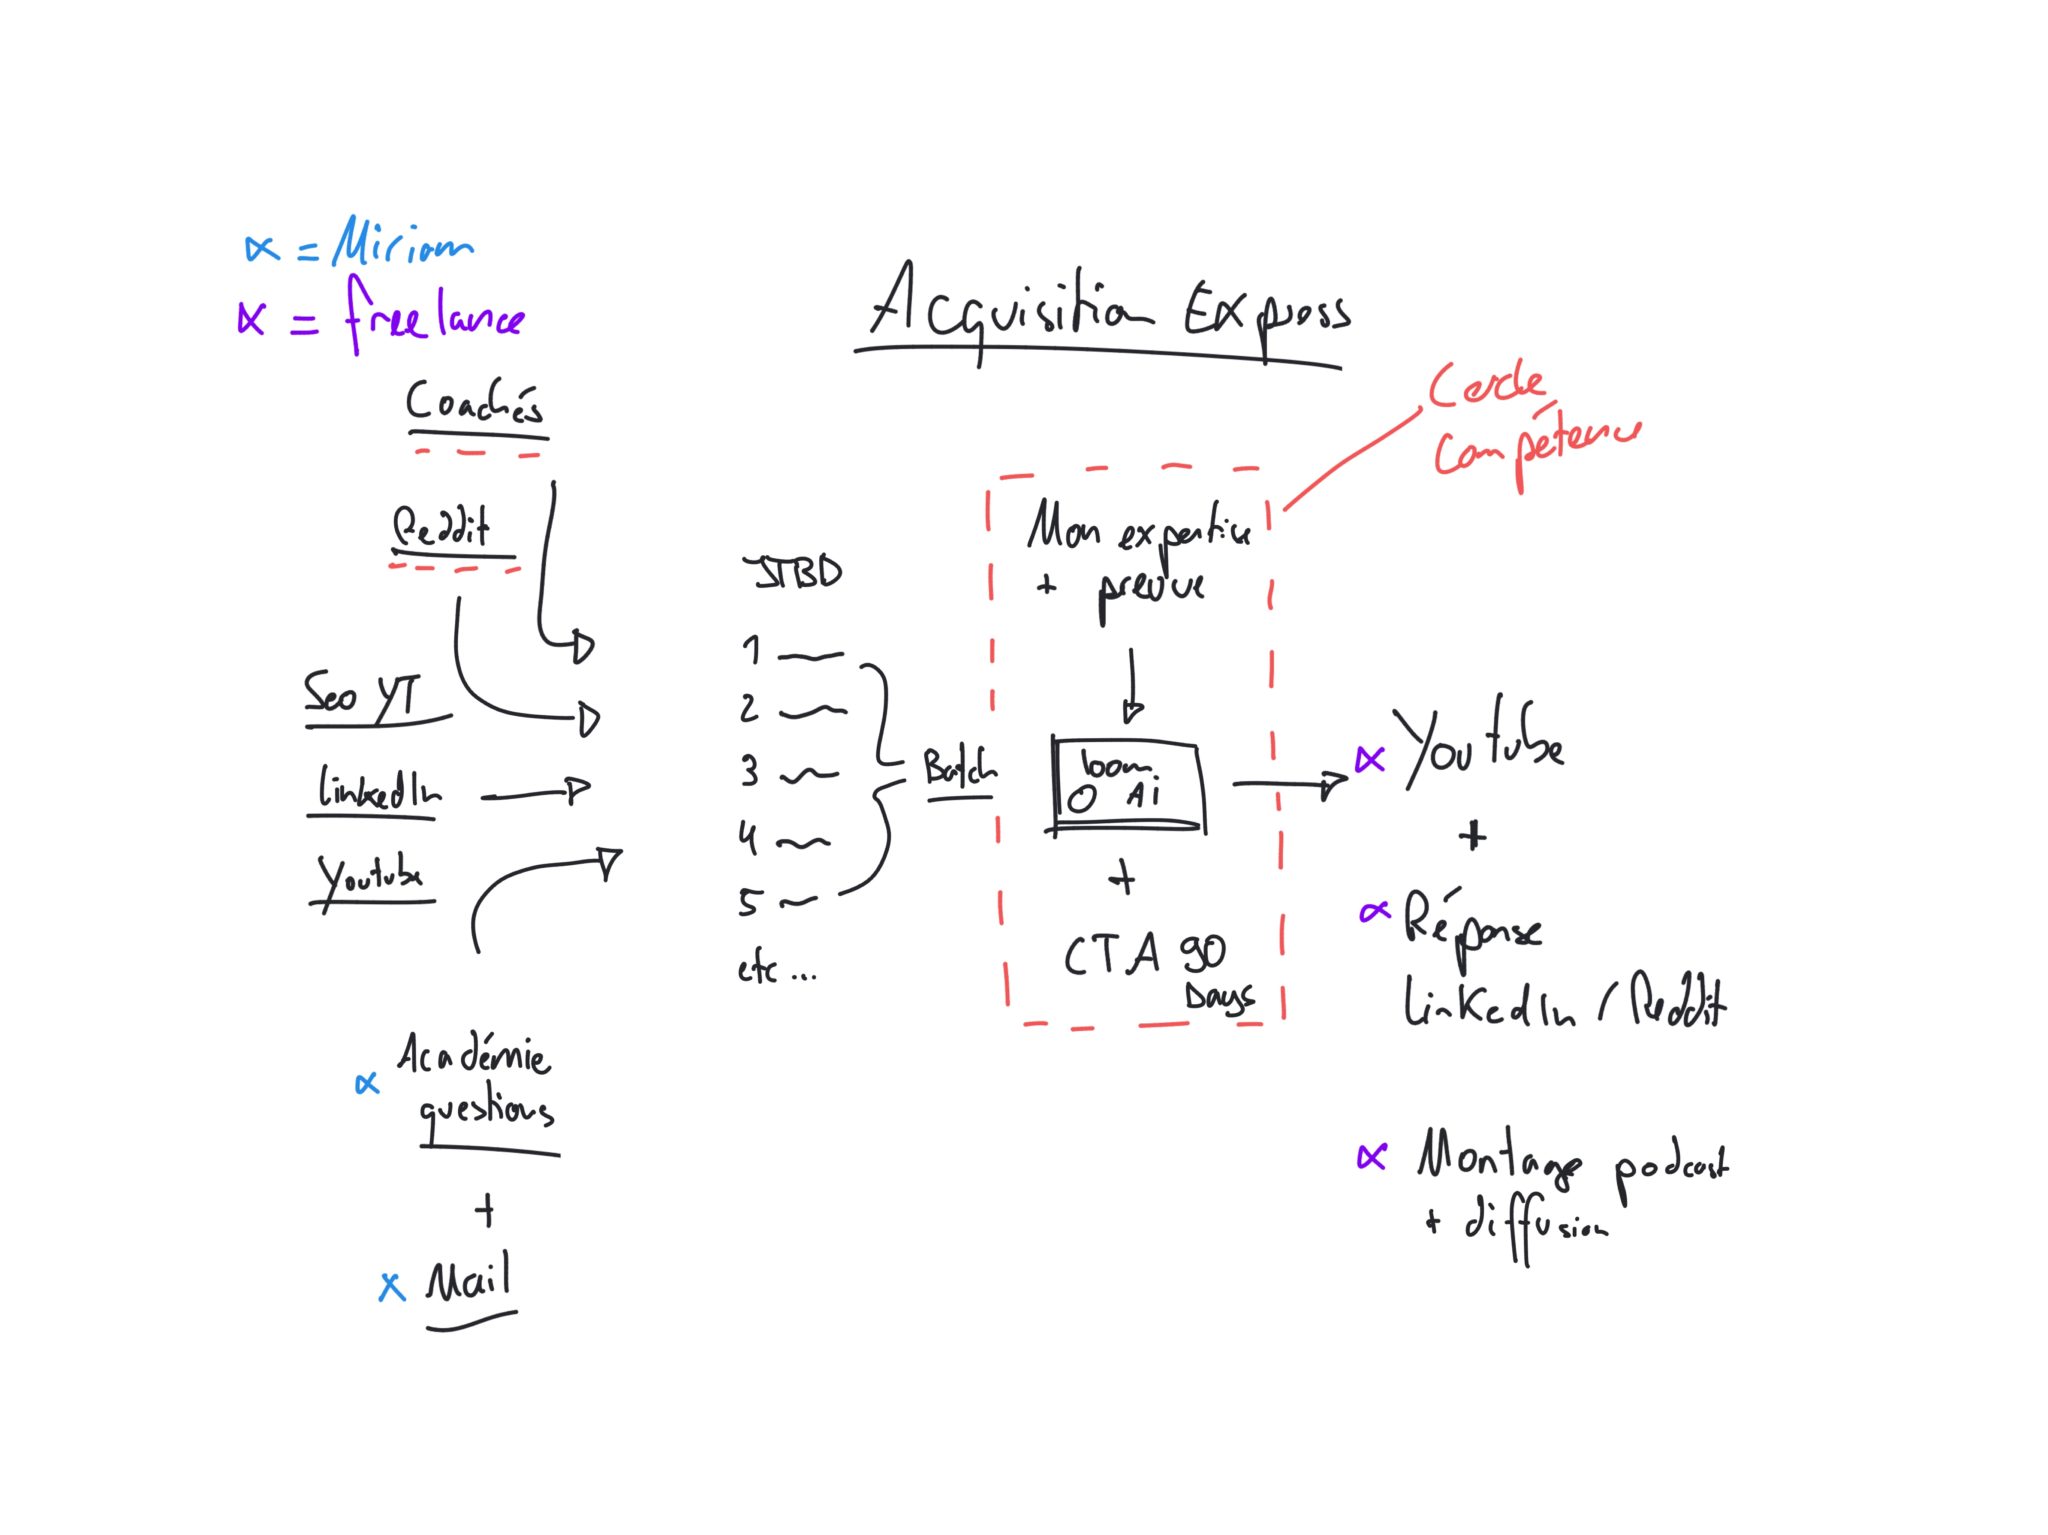 ∝ = Miriam
∝ = freelance
Acquisition Express
Coachés
Cercle
Compétence
Reddit
Mon expertise
+ preuve
JTBD
1
2
3
4
5
etc ...
Seo YT
LinkedIn
Youtube
Batch
loom
O Ai
+
CTA 90
Days
∝ Youtube
+
∝ Réponse
LinkedIn / Reddit
∝ Académie
questions
+
x Mail
∝ Montage podcast
+ diffusion